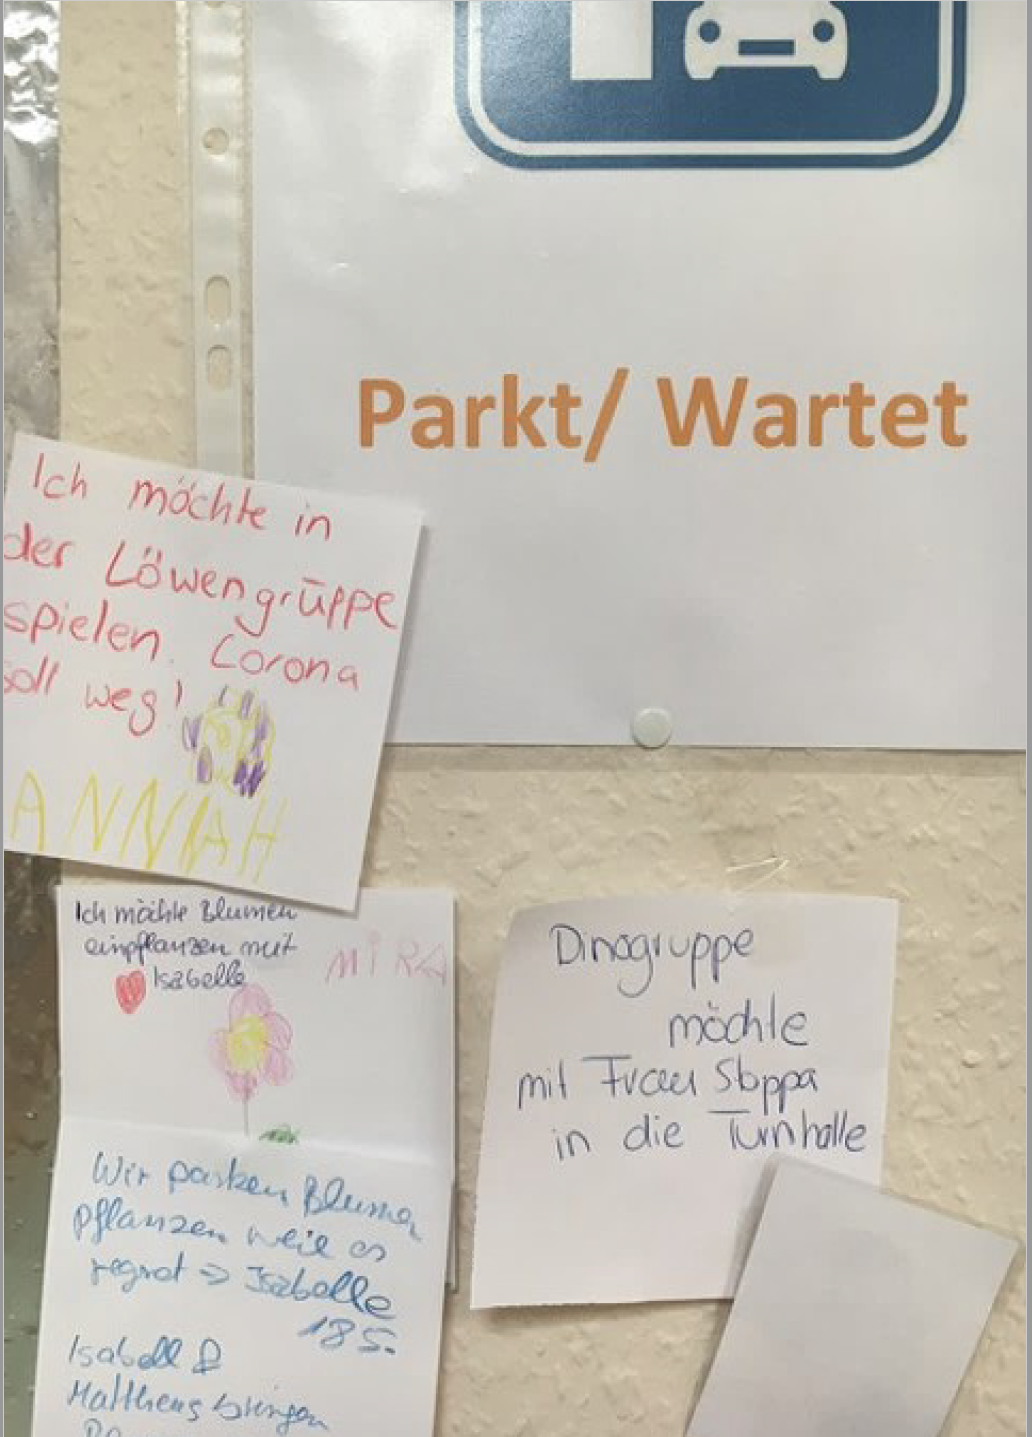 Parkt/ Wartet
Ich möchte in
der Löwengruppe
spielen. Corona
soll weg!
ANNAH
Ich möchte Blumen
einpflanzen mit
Isabelle
MiRA
Dinogruppe
möchte
mit Frau Stoppa
in die Turnhalle
Wir parken Blumen
pflanzen weil es
regnet → Isabelle
18.5.
Isabell &
Mattheus bringen